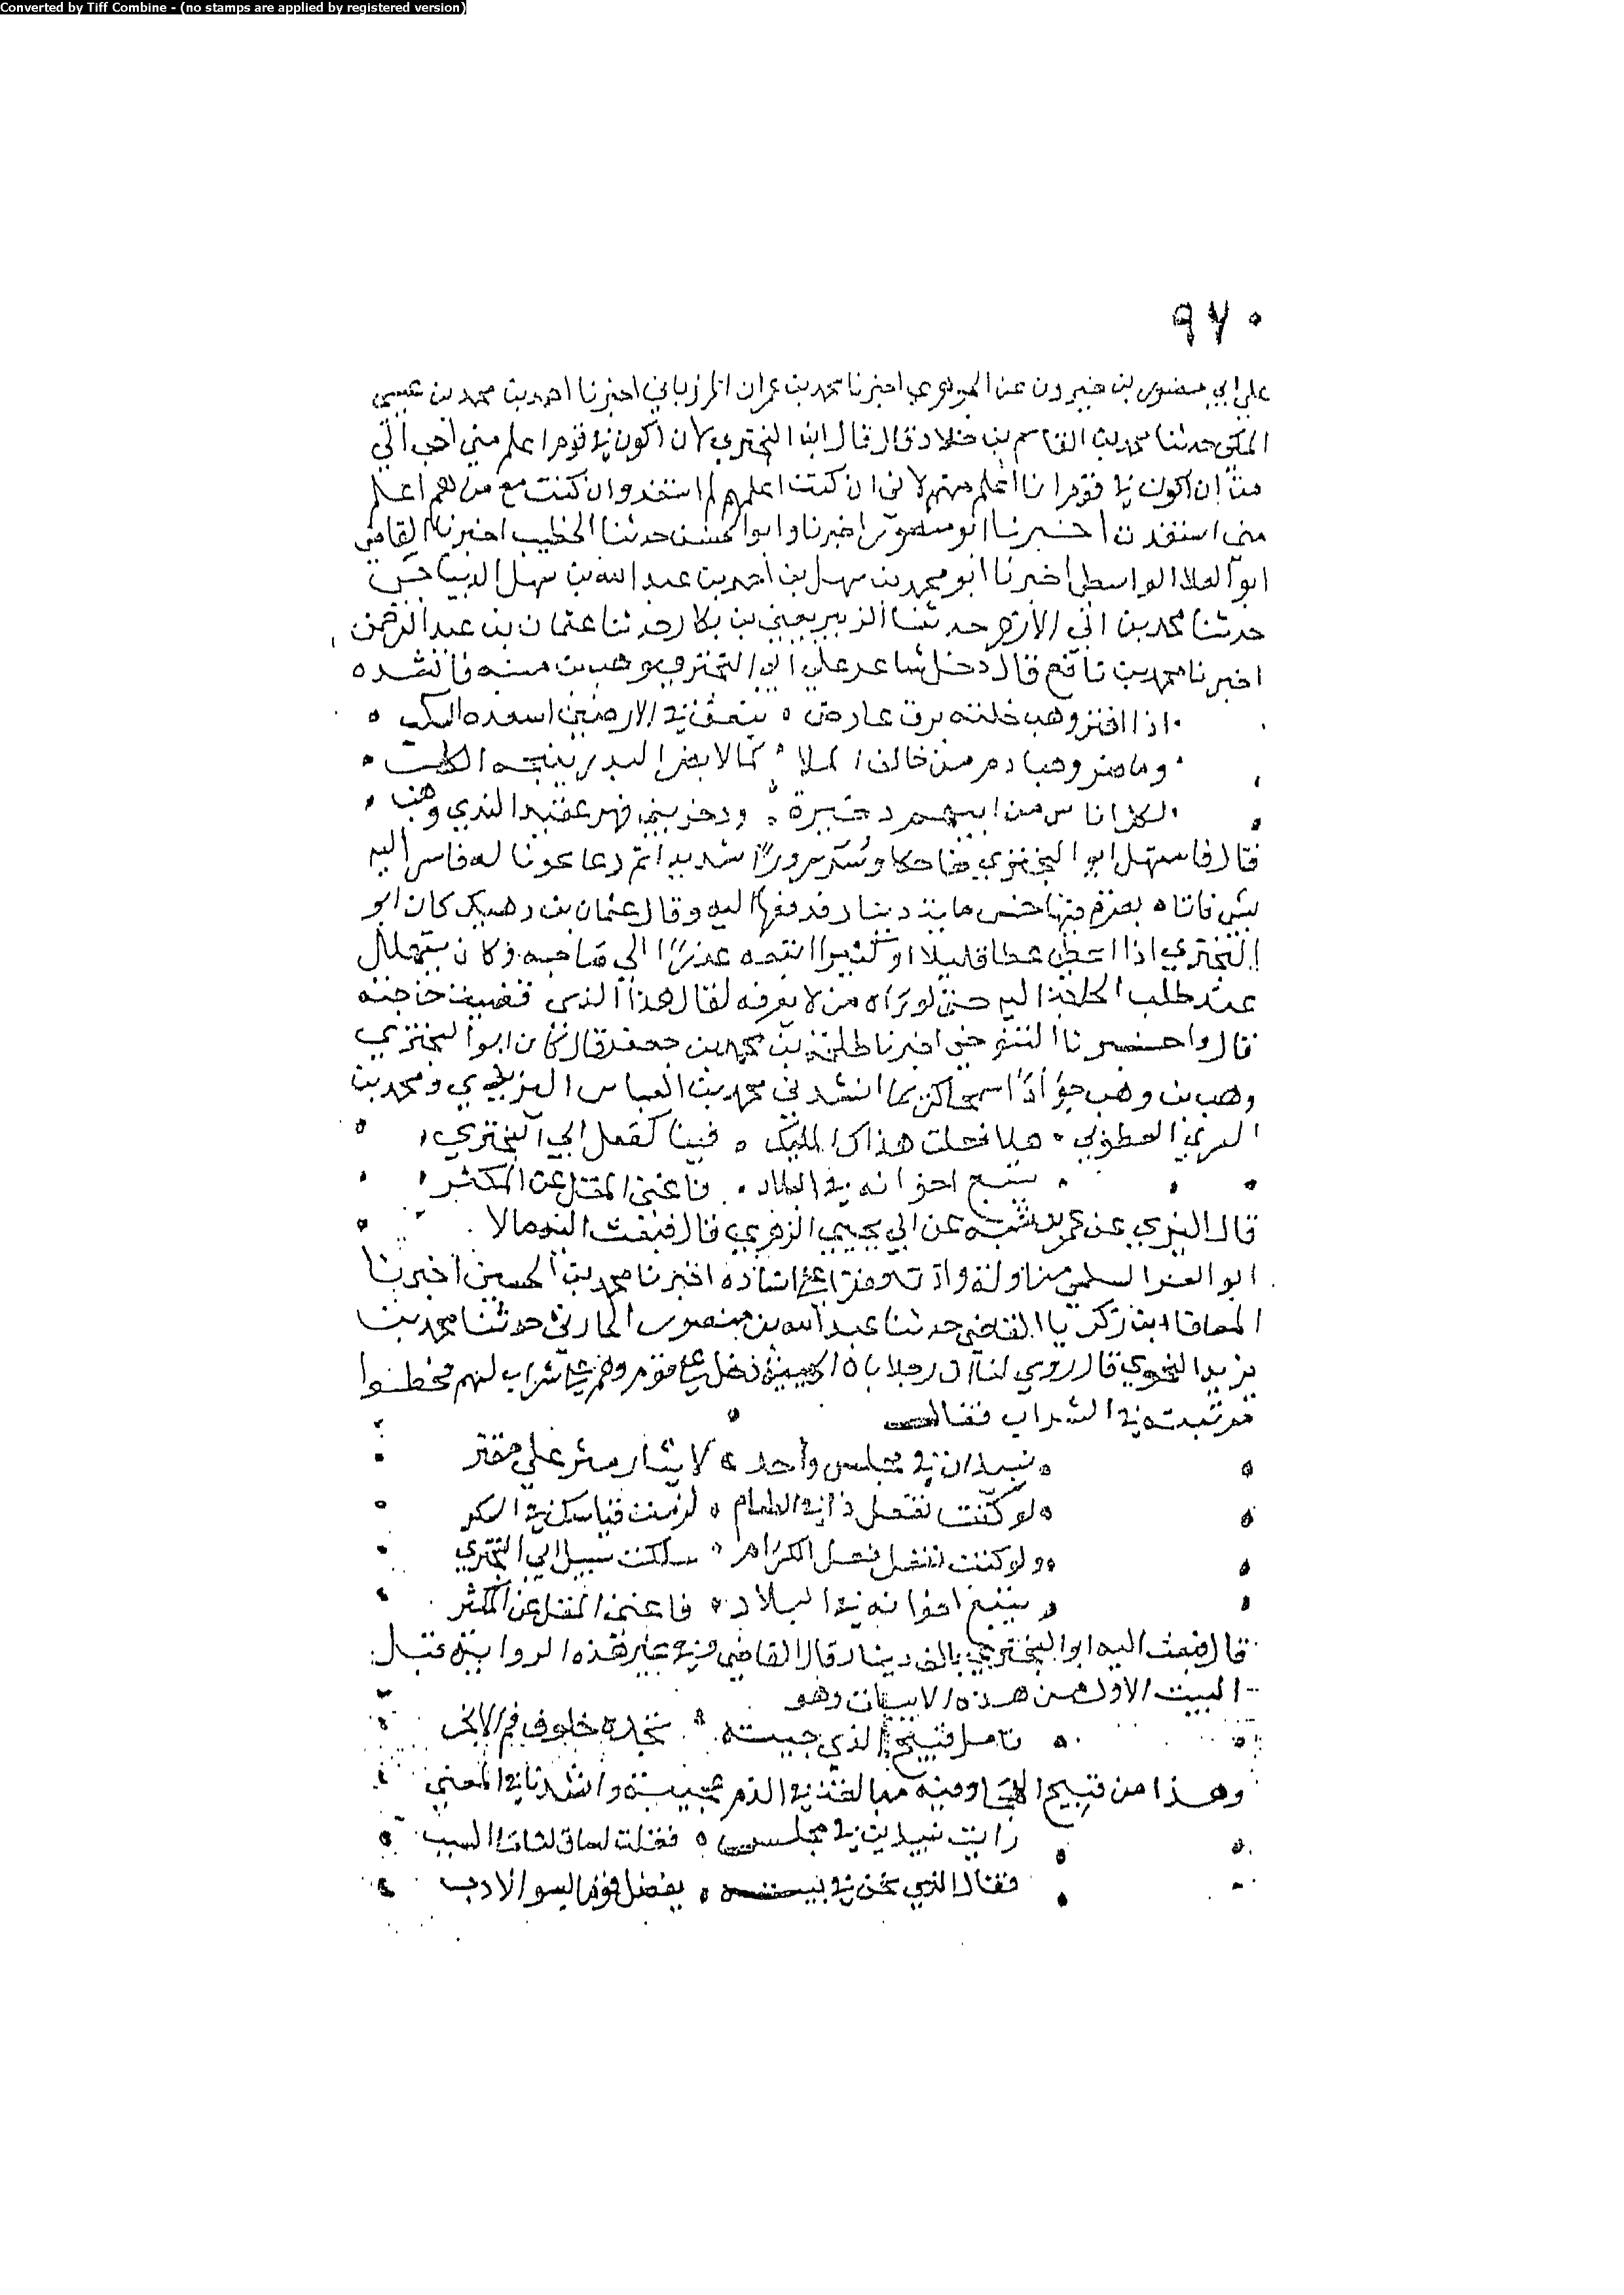 Converted by Tiff Combine - (no stamps are applied by registered version)
٩٧٠
علي ابي منصور بن خيرون عن الجوهري اخبرنا محمد بن عمران المرزباني اخبرنا احمد بن محمد بن عيسى
المكي حدثنا محمد بن القاسم بن خلاد قال قال ابو البختري لان اكون في قوم اعلم مني احب الي
من ان اكون في قوم انا اعلم منهم لاني ان كنت اعلمهم لم استفد وان كنت مع من هم اعلم
مني استفدت اخبرنا ابو منصور اخبرنا وابو الحسن حدثنا الخطيب اخبرنا القاضي
ابو العلا الواسطي اخبرنا ابو محمد بن سهل بن احمد بن عبد الله بن سهل الديباجي
حدثنا محمد بن ابي الازهر حدثنا الزبير يعني بن بكار حدثنا عثمان بن عبد الرحمن
اخبرنا محمد بن نافع قال دخل شاعر علي ابي البختري وهب بن منبه فانشده
اذا افتر وهب خلته برق عارض ٥ في الارضين اسعده السكب ٥
وما ضر وهبا دم من خالف الملا كما لا يضر البدر ينبحه الكلب
لكل اناس من ابيهم دخيرة ودخر بني فهر عقيد الندي وهب
قال فاستهل ابو البختري ضاحكا وسر سرورا شديدا ثم دعا عونا له فاسر اليه
بشي فاتاه بصرة فيها خمس ماية دينار فدفعها اليه وقال عثمان بن نهيك كان ابو
البختري اذا اعطى عطا قليلا او كثيرا اتبعه عذرا الي صاحبه وكان يتهلل
عند طلب الحاجة اليه حتى لو راه من لا يعرفه لقال هذا الذي قضيت حاجته
قال واخبرنا التنوخي اخبرنا طلحة بن محمد بن جعفر قال كان ابو البختري
وهب بن وهب جوادا سمحا انشدني محمد بن العباس اليزيدي ومحمد بن
العطوي ٥ هلا فعلت هداك المليك ٥ فينا كفعل ابي البختري
تتبع اخوانه في البلاد فاغنى المقل عن المكثر
قال اليزيدي عن عمر بن شبه عن ابي يحيى الزهري قال فبعث اليه مالا
ابو العز السلمي مناولة واذنه وقرا علي اسناده اخبرنا محمد بن الحسين اخبرنا
المعافا ابن زكريا القاضي حدثنا عبد الله بن منصور الحارثي حدثنا محمد بن
يزيد النحوي قال روي لنا ان رجلا دخل علي قوم وهم علي شراب لهم فحطوا
مرتبته في الشراب فقال
نبيدان في مجلس واحد لايثار مثر علي مقتر
لو كنت تفعل ذا في الطعام ٥ لزمت قياسك في السكر
ولو كنت تفعل فعل الكرام سلكت سبيل ابي البختري
تتبع اخوانه في البلاد ٥ فاغنى المقل عن المكثر
قال فبعث اليه ابو البختري بالف دينار قال القاضي وفي غير هذه الرواية قبل
البيت الاول من هذه الابيات وهو
تامل قبيح الذي جيته تجده خلوف فم الابخر
وهذا من قبيح الهجا وفيه مبالغة في الذم عجيبة وانشدنا في المعنى
رايت نبيدين في مجلس ٥ فقلت لساق السبب
فقال الذي نحن في بيته يفضل قوما لسو الادب